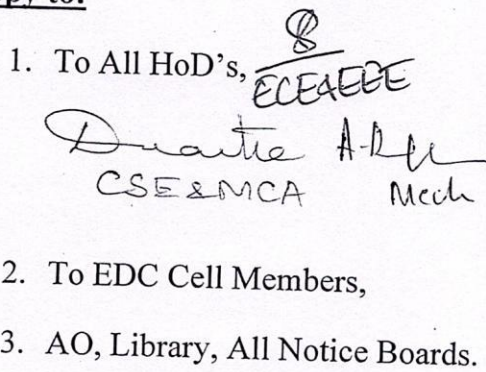 py to:
1. To All HoD's,
ECE&EEE
CSE&MCA Mech
2. To EDC Cell Members,
3. AO, Library, All Notice Boards.